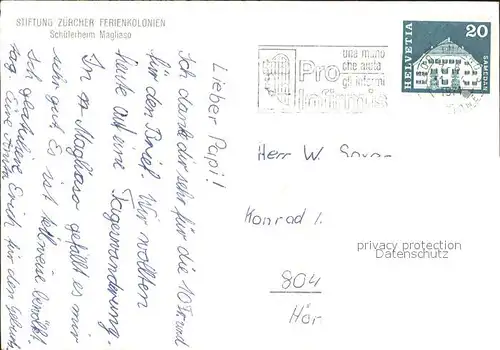 STIFTUNG ZÜRCHER FERIENKOLONIEN
Schülerheim Magliaso
Lieber Papi!
Ich danke dir sehr für die 10 Fr und
für den Brief. Wir wollten
heute auf eine Tageswanderung.
In Magliaso gefällt es mir
sehr gut. Es ist teilweise bewölkt.
Ich gratuliere Erich für den Geburts
tag. Eure Anita
una mano
che aiuta
gli infermi
Pro
Infirmis
HELVETIA
20
SAMEDAN
Herr W.
Konrad
804
Hör
privacy protection
Datenschutz